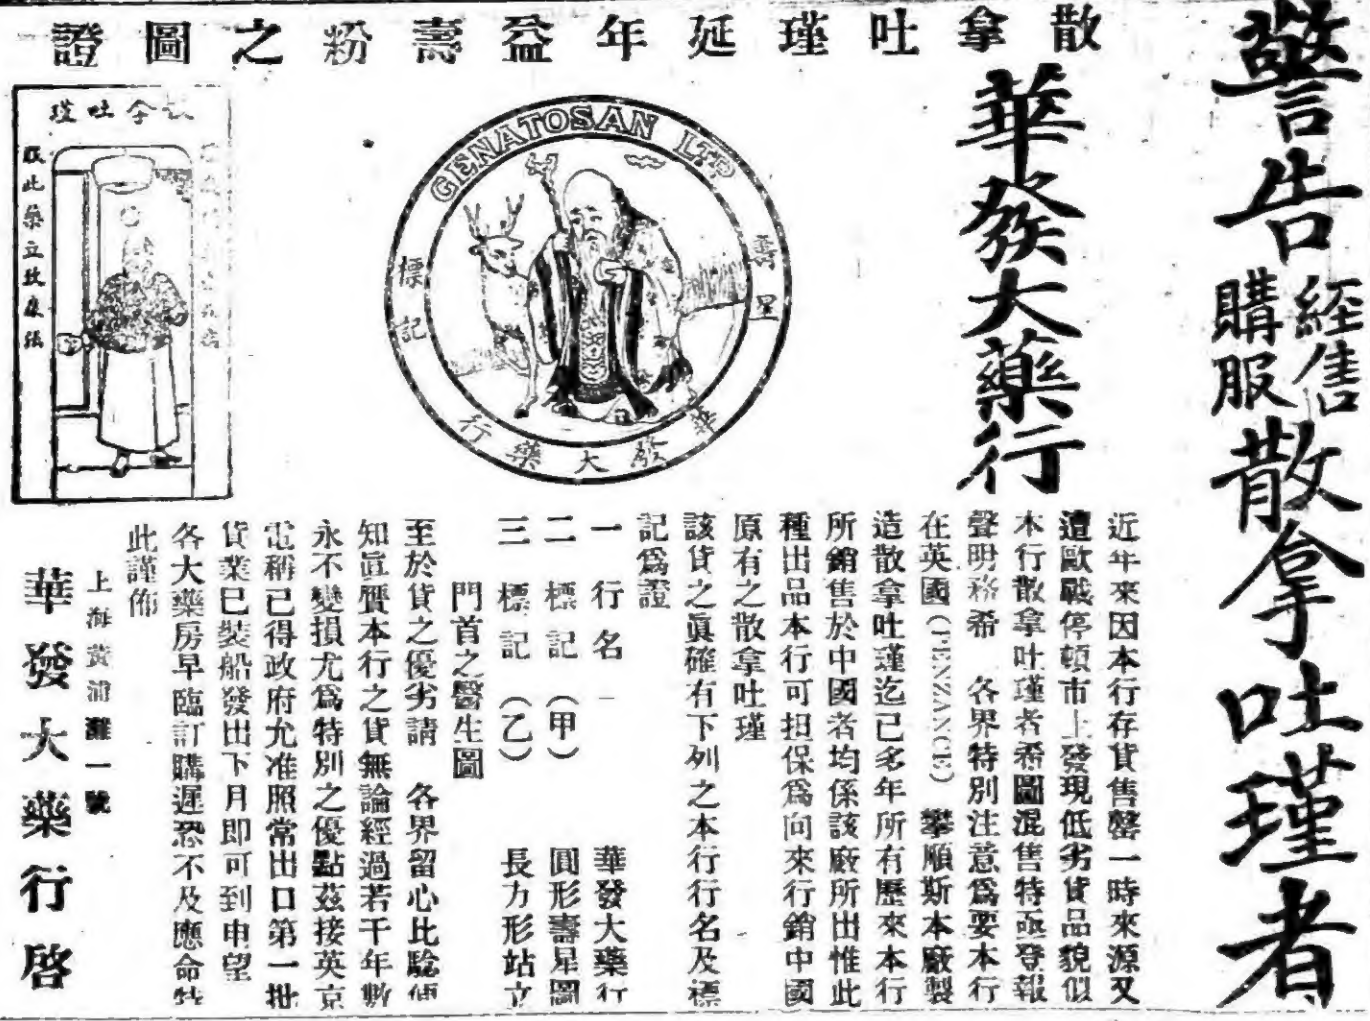 警告經售購服散拿吐瑾者
華發大藥行
散拿吐瑾延年益壽粉之圖證
GENATOSAN LTD
壽星
標記
華發大藥行
散拿吐瑾
服此藥立致康強
近年來因本行存貨售罄一時來源又
遭歐戰停頓市上發現低劣貨品貌似
本行散拿吐瑾者希圖混售特亟登報
聲明務希 各界特別注意爲要本行
在英國(PENZANCE)攀順斯本廠製
造散拿吐瑾迄已多年所有歷來本行
所銷售於中國者均係該廠所出惟此
種出品本行可担保爲向來行銷中國
原有之散拿吐瑾
該貨之眞確有下列之本行行名及標
記爲證
一 行名 華發大藥行
二 標記(甲) 圓形壽星圖
三 標記(乙) 長方形站立
門首之醫生圖
至於貨之優劣請 各界留心比驗便
知眞贋本行之貨無論經過若干年數
永不變損尤爲特別之優點茲接英京
電稱已得政府允准照常出口第一批
貨業已裝船發出下月即可到申望
各大藥房早臨訂購遲恐不及應命特
此謹佈
上海黃浦灘一號
華發大藥行啓